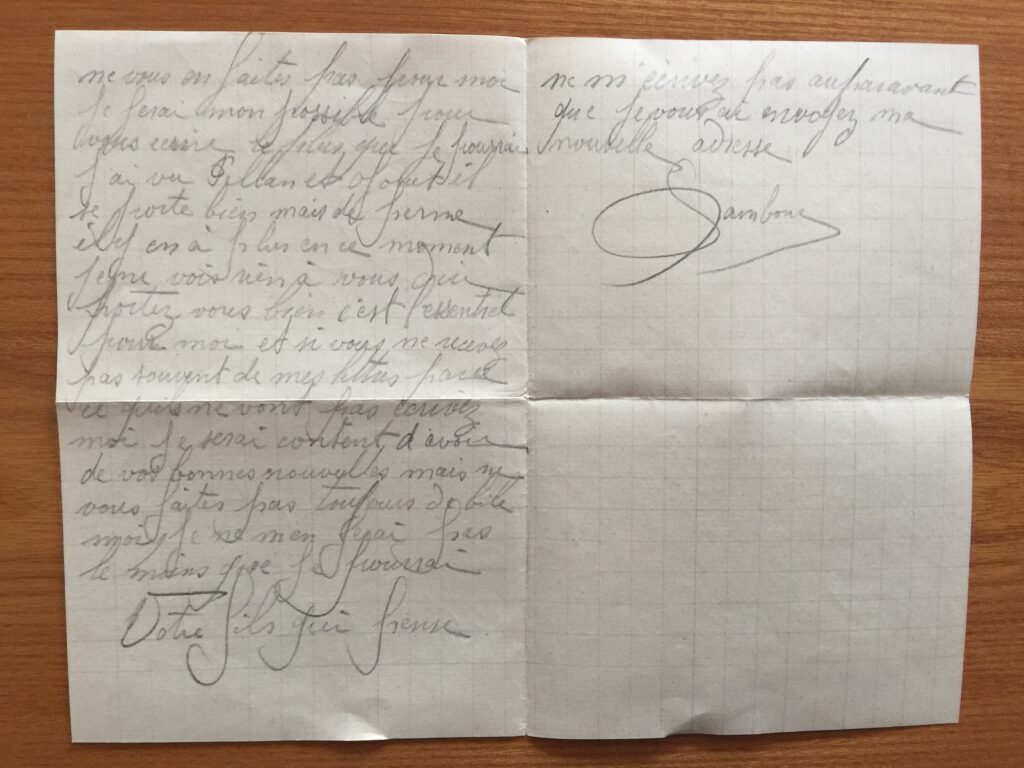 ne vous en faites pas pour moi
je ferai mon possible pour
vous ecrire le plus que je pourrai
J'ai vu et il
se porte bien mais de ferme
il y en à plus en ce moment
je ne vois rien à vous dire
portez vous bien c'est l'essentiel
pour moi et si vous ne recevez
pas souvent de mes lettres parce
ce quils ne vont pas ecrivez
moi je serai content d'avoir
de vos bonnes nouvelles mais ne
vous faites pas toujours de bile
moi je ne men ferai pas
le moins que je pourrai
Votre fils qui pense
ne m'écrivez pas auparavant
que je vous ai envoyez ma
nouvelle adresse